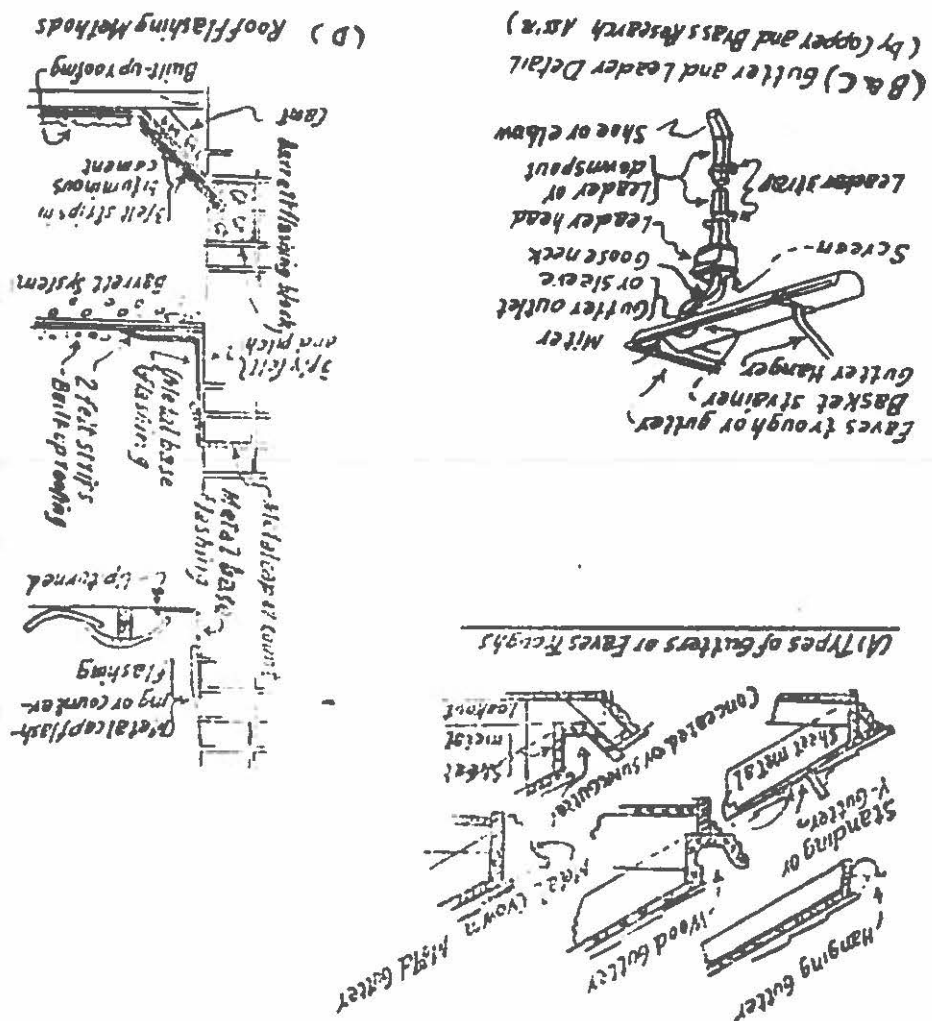 Hanging Gutter
Wood Gutter
Mold Gutter
Crown
Standing or
V-Gutter
Sheet metal
Concealed or sunk Gutter
Sheet
metal
lookout
(A) Types of Gutters or Eaves Troughs
Eaves trough or gutter
Basket strainer
Gutter Hanger
Miter
Gutter outlet
or sleeve
Goose neck
Screen
Leader head
Leader or
downspout
Leader strap
Shoe or elbow
(B & C) Gutter and Leader Detail
(by Copper and Brass Research Ass'n)
Metal cap flash-
ing or counter-
flashing
Upturned
Metal base
flashing
Metal cap or
Metal base
flashing
2 felt strips
Built-up roofing
Barrett System
and pitch
Barrett flashing block
3 felt strips in
bituminous
cement
Cant
Built-up roofing
(D) Roof Flashing Methods